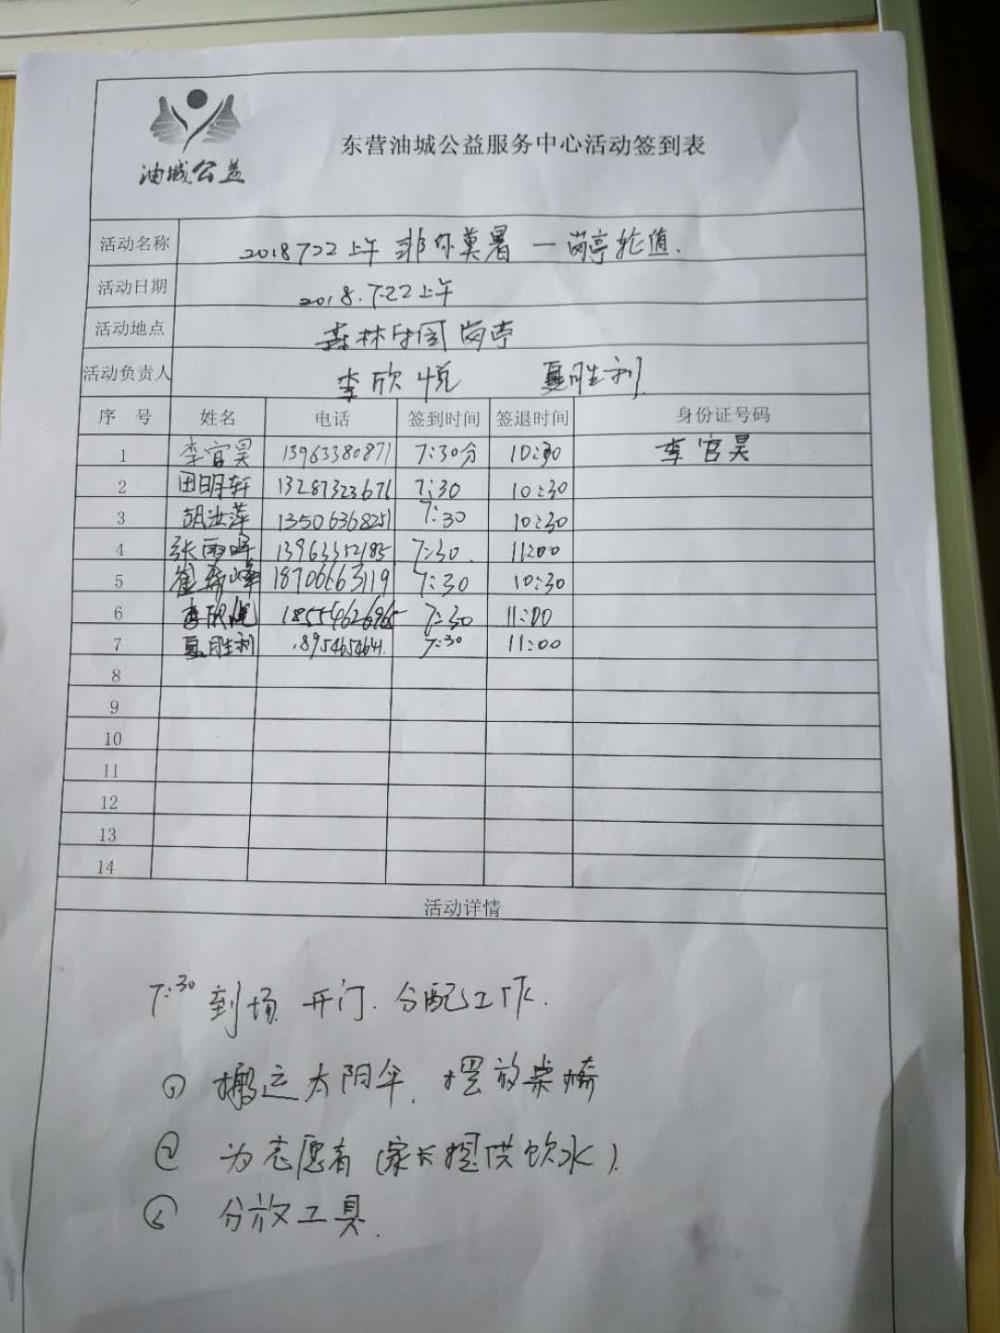 油城公益
东营油城公益服务中心活动签到表
活动名称 2018 7 22 上午 非你莫暑 一 岗亭轮值.
活动日期 2018.7.22上午
活动地点 森林公园岗亭
活动负责人 李欣悦 夏胜利
序 号 姓名 电话 签到时间 签退时间 身份证号码
1 李官昊 13963380871 7:30分 10:30 李官昊
2 田明轩 13287323676 7:30 10:30
3 胡汝萍 13506368251 7:30 10:30
4 张雨 13963352185 7:30. 11:00
5 崔 峰 18706663119 7:30 10:30
6 李欣悦 18554626965 7:30 11:00
7 夏胜利 7:30 11:00
8
9
10
11
12
13
14
活动详情
7:30 到场 开门. 分配工作.
① 搬运太阳伞. 摆放桌椅
② 为志愿者(家长提供饮水).
③ 分放工具.